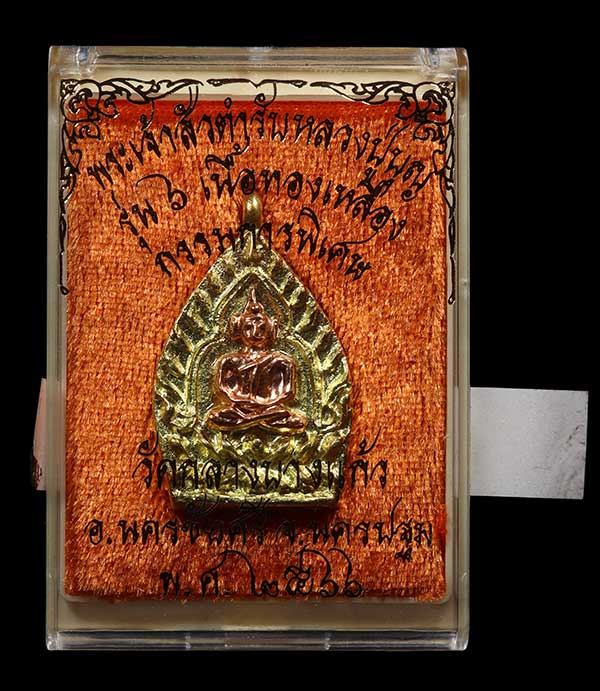 พระเจ้าสัวตำรับหลวงปู่บุญ
รุ่น ๖ เนื้อทองเหลือง
กรรมการพิเศษ
วัดกลางบางแก้ว
อ.นครชัยศรี จ.นครปฐม
พ.ศ. ๒๕๖๖